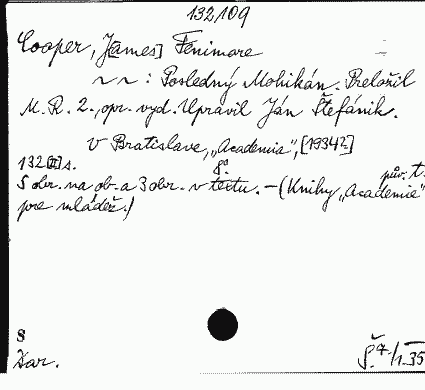 132,109
Cooper, J[ames] Fenimore
~ ~ : Posledný Mohikán. Preložil
M. R. 2., opr. vyd. Upravil Ján Štefánik.
V Bratislave, „Academia“, [1934?]
132 s. 8°
S obr. na ob. a 3 obr. v textu. – (Knihy „Academie“ pův. t.
pre mládež.)
S
Dar.
35